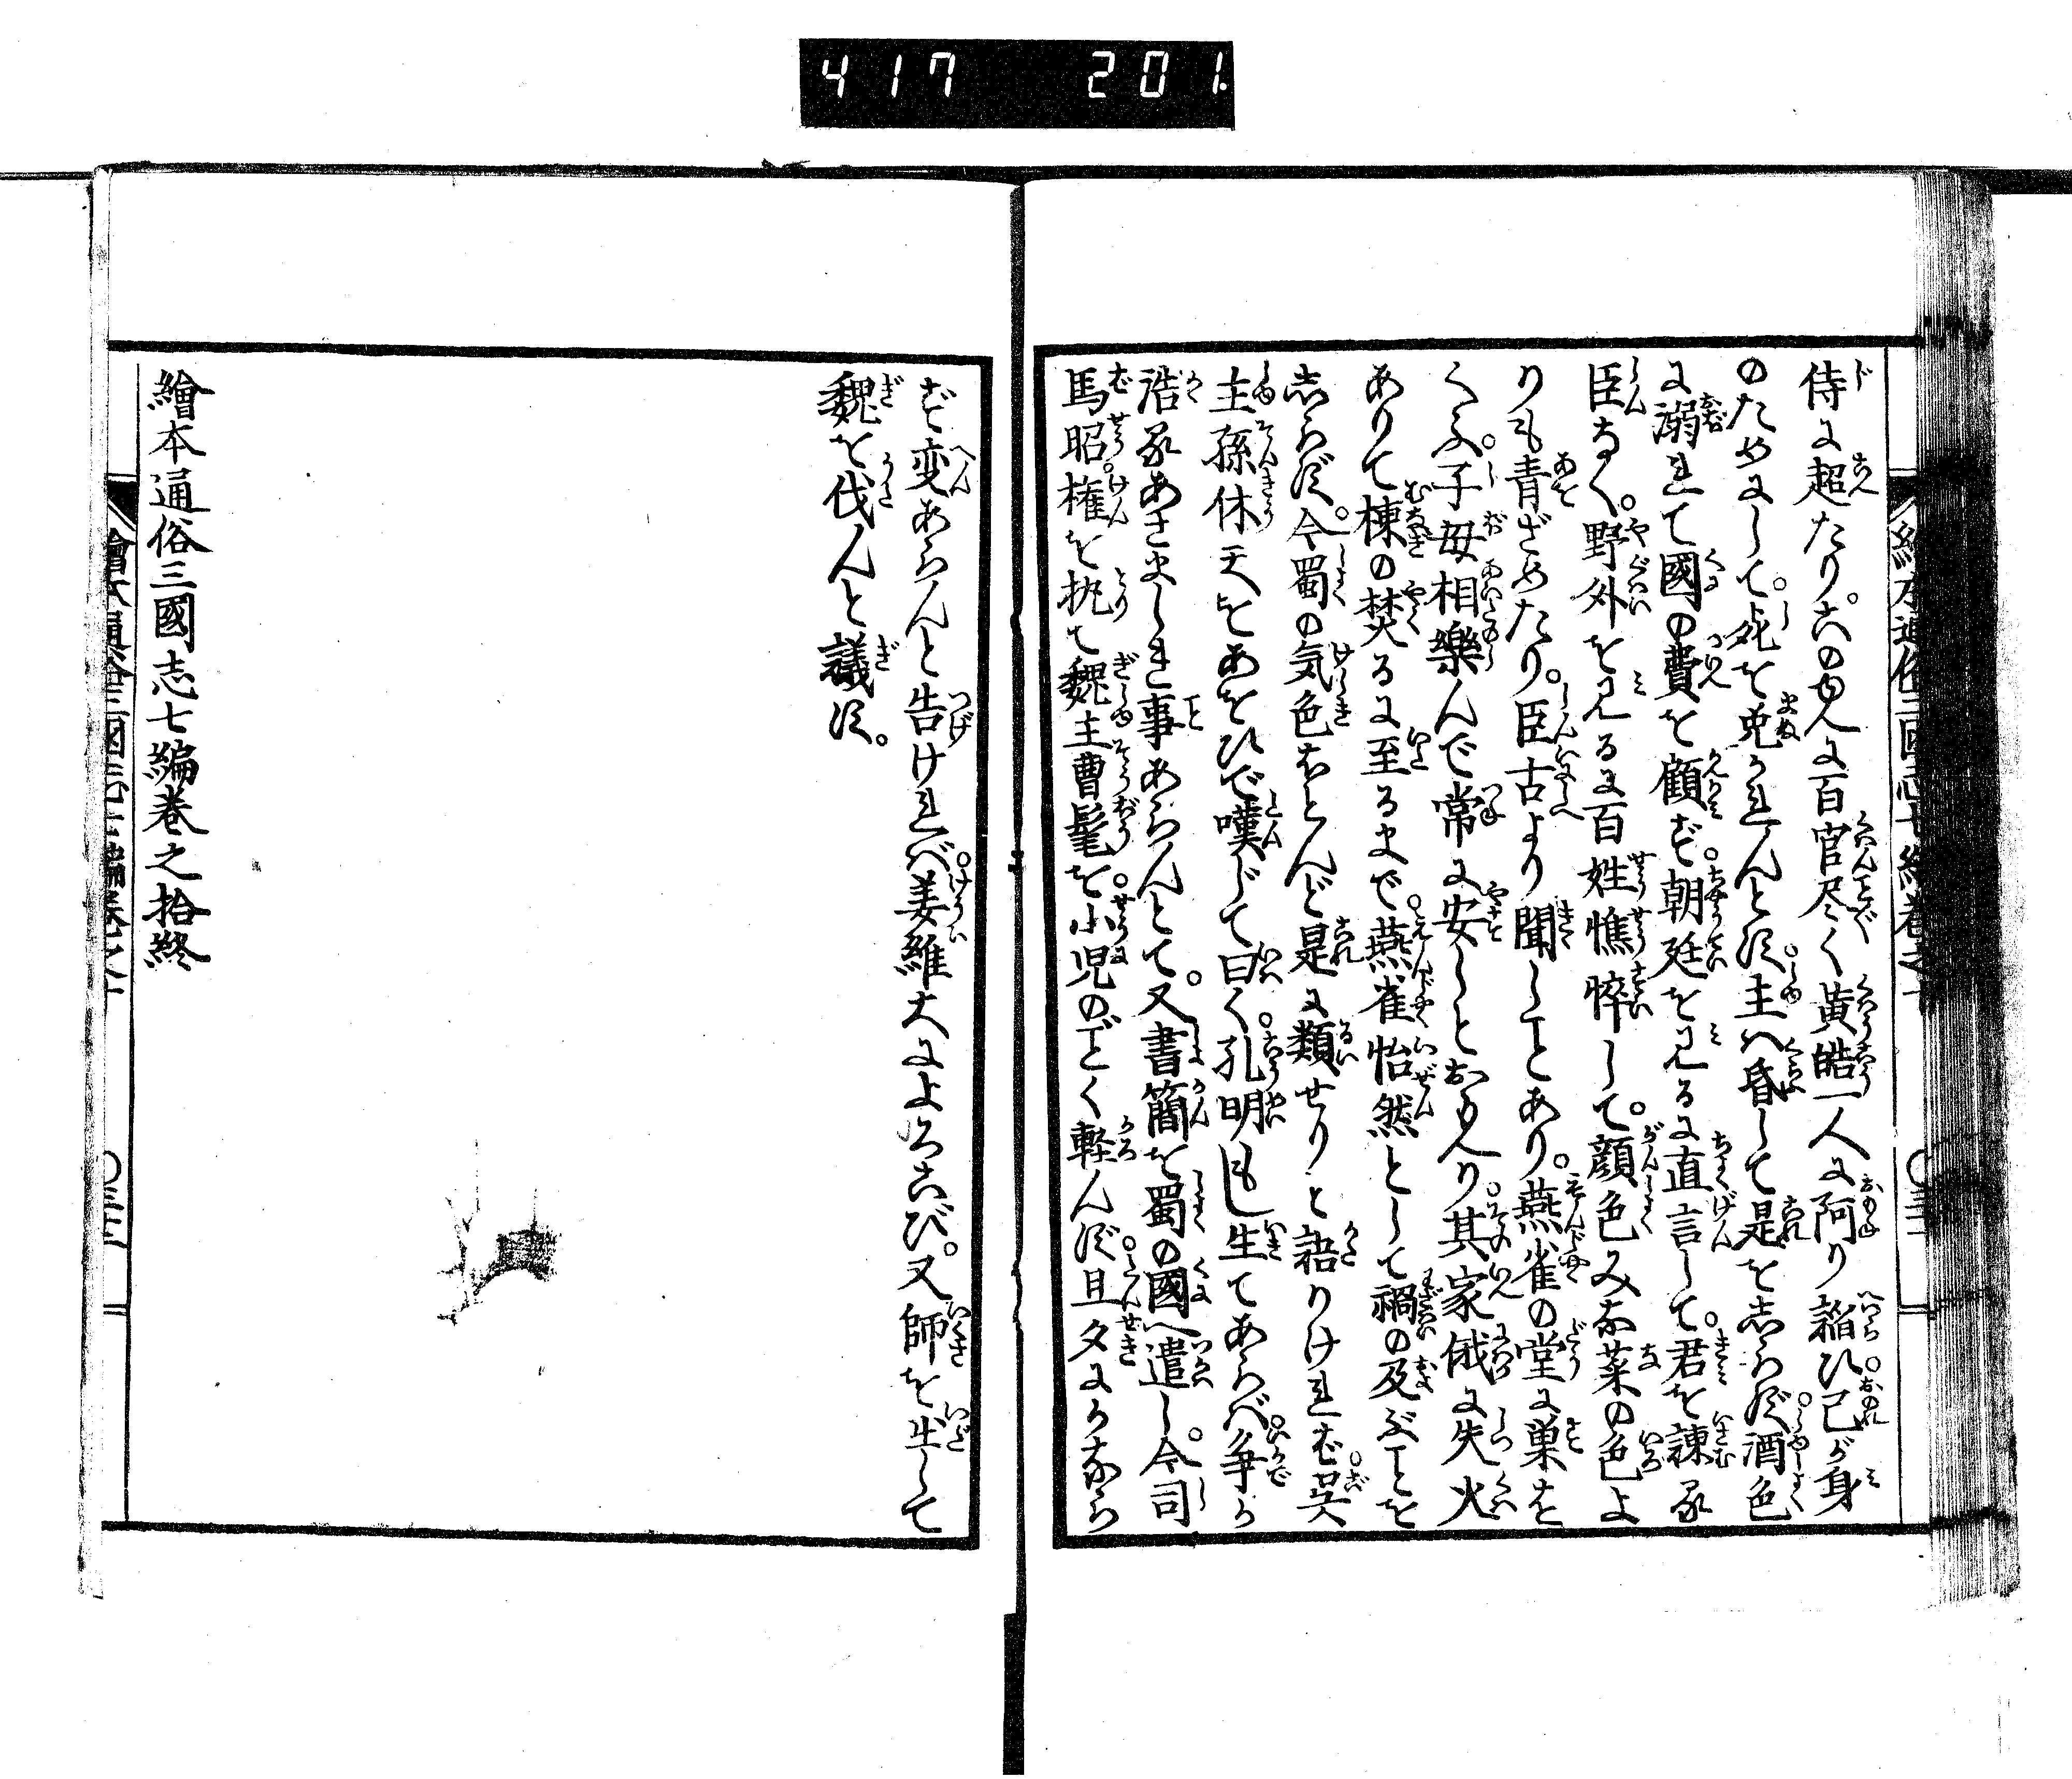 417 201.
侍に超たり。六のゆへに百官尽く黄皓一人に阿り謟ひ己が身
のためにして。死を免かれんとす。主ハ昏して是をしらず。酒色
に溺れて國の費を顧ず。朝廷を見るに直言して。君を諫る
臣なく。野外を見るに百姓憔悴して。顔色みな菜の色よ
りも青ざめたり。臣古より聞しことあり。燕雀の堂に巣を
くふ。子母相樂んで常に安しとおもへり。其家俄に失火
ありて棟の焚るに至るまで。燕雀怡然として禍の及ぶことを
しらず。今蜀の気色ほとんど是に類せりと語りけれバ。呉
主孫休天をあをひで嘆じて曰く。孔明もし生てあらバ。争か
浩るあさましき事あらんとて。又書簡を蜀の國へ遣し。今司
馬昭権を執て魏主曹髦を。小児のごとく軽んず。旦夕にかなら
ず変あらんと告けれバ。姜維大によろこび。又師を出して
魏を伐んと議す。
繪本通俗三國志七編巻之拾終